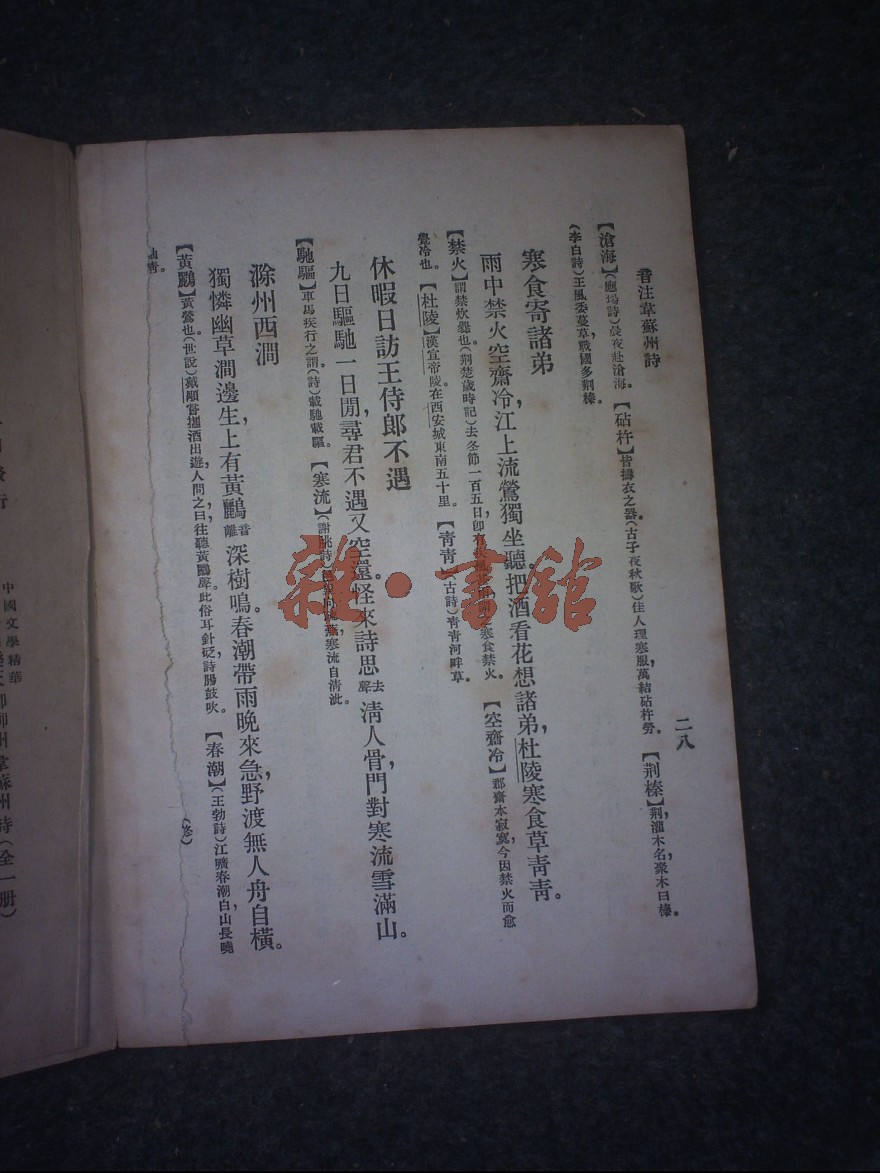 音注韋蘇州詩
二八
【滄海】(應瑒詩)晨夜赴滄海。【砧杵】皆擣衣之器。(古子夜秋歌)佳人理寒服,萬結砧杵勞。【荆榛】荆,灌木名,叢木曰榛。
(李白詩)王風委蔓草,戰國多荆榛。
寒食寄諸弟
雨中禁火空齋冷,江上流鶯獨坐聽。把酒看花想諸弟,杜陵寒食草靑靑。
【禁火】謂禁炊爨也。(荆楚歲時記)去冬節一百五日卽有寒食禁火。【空齋冷】郡齋本寂寞,今因禁火而愈
覺冷也。【杜陵】漢宣帝陵,在西安城東南五十里。【靑靑】(古詩)靑靑河畔草。
休暇日訪王侍郎不遇
九日驅馳一日閒,尋君不遇又空還。怪來詩思去聲淸人骨,門對寒流雪滿山。
【馳驅】車馬疾行之謂。(詩)載馳載驅。【寒流】(謝朓詩)寒流自淸泚。
滁州西澗
獨憐幽草澗邊生,上有黃鸝音離深樹鳴。春潮帶雨晚來急,野渡無人舟自橫。
【黃鸝】黃鶯也。(世說)戴顒嘗攜酒出遊,人問之曰,往聽黃鸝聲,此俗耳針砭,詩腸鼓吹。【春潮】(王勃詩)江曠春潮白,山長曉
岫靑。
(終)
行
中國文學精華
州韋蘇州詩(全一册)
雜·書館